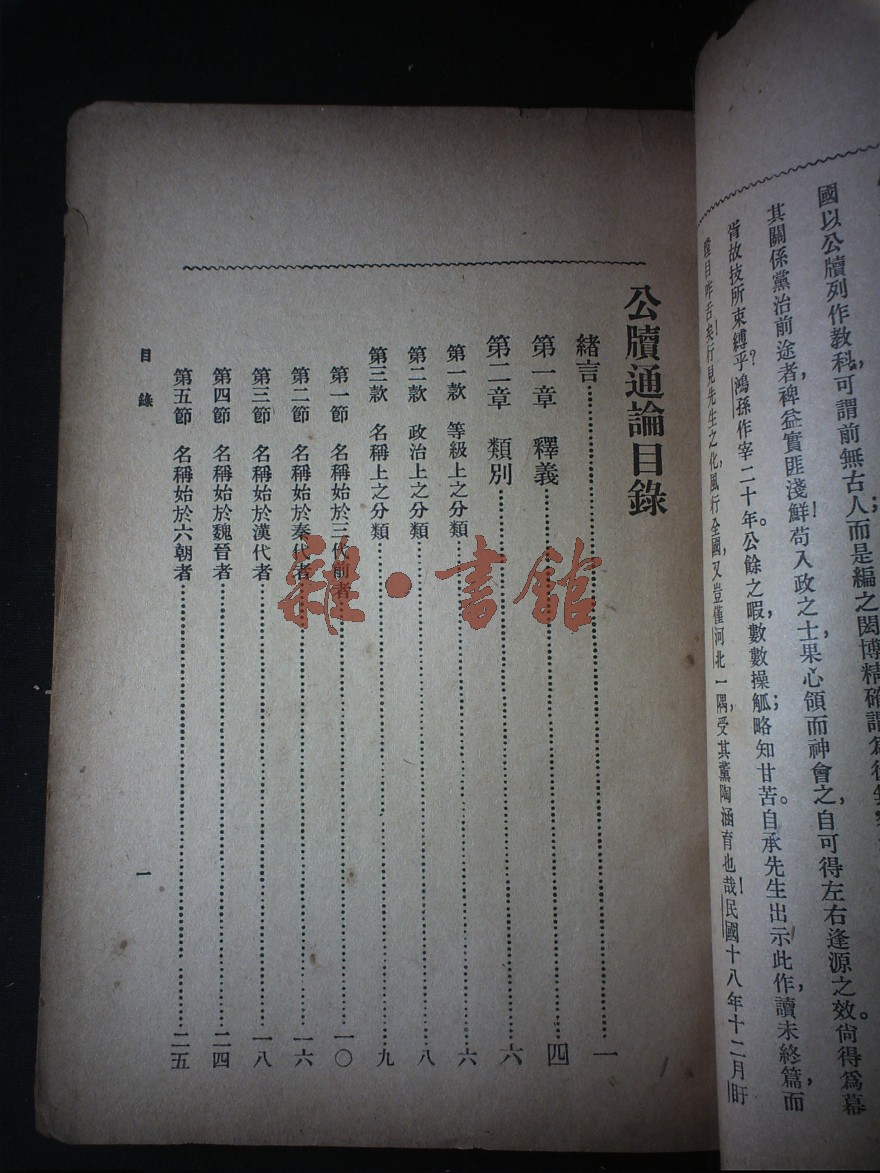 國以公牘列作教科,可謂前無古人;而是編之閎博精確,謂爲後無
其關係黨治前途者,裨益實匪淺鮮!苟入政之士,果心領而神會之,自可得左右逢源之效。尙得爲幕
胥故技所束縛乎?鴻孫作宰二十年。公餘之暇,數數操觚;略知甘苦。自承先生出示此作,讀未終篇,而
瞠目咋舌矣!行見先生之化,風行全國,又豈僅河北一隅,受其薰陶涵育也哉!民國十八年十二月盱
公牘通論目錄
緒言……一
第一章 釋義……四
第二章 類別……六
第一款 等級上之分類……六
第二款 政治上之分類……八
第三款 名稱上之分類……九
第一節 名稱始於三代前者……一〇
第二節 名稱始於秦代者……一六
第三節 名稱始於漢代者……一八
第四節 名稱始於魏晉者……二四
第五節 名稱始於六朝者……二五
目錄
一
雜·書館